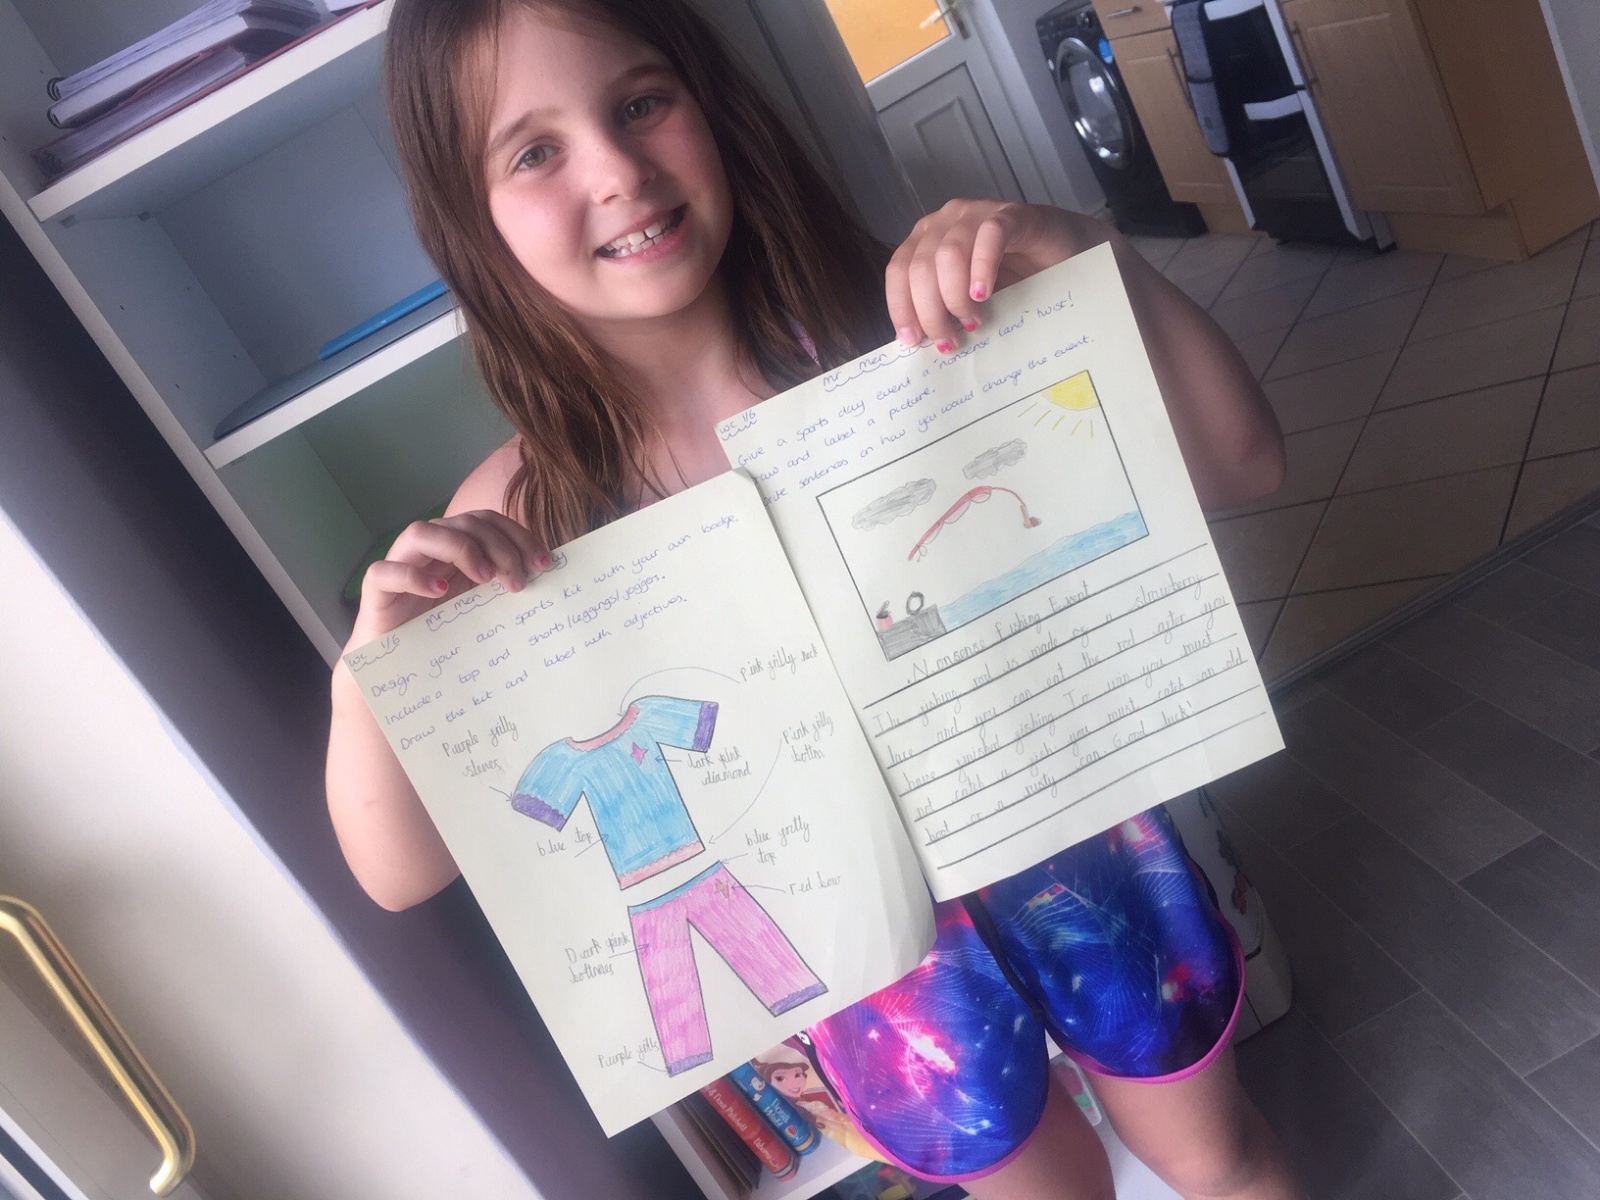 wc 1/6
Mr Men
Design your own sports kit with your own badge.
Include a top and shorts/leggings/joggers.
Draw the kit and label with adjectives.
pink frilly neck
Purple frilly
sleves
dark pink
diamond
pink frilly
bottm
blue top
blue frilly
top
red bow
Dark pink
Purple frilly
wc 1/6
Mr Men
Give a sports day event a "nonsense land" twist!
and label a picture.
sentences on how you would change the event.
Nonsense fishing Event
The fishing rod is made of a strawberry
lace and you can eat the rod after you
have finished fishing. To win you must
not catch a fish you must catch an old
boot or a rusty can. Good luck!